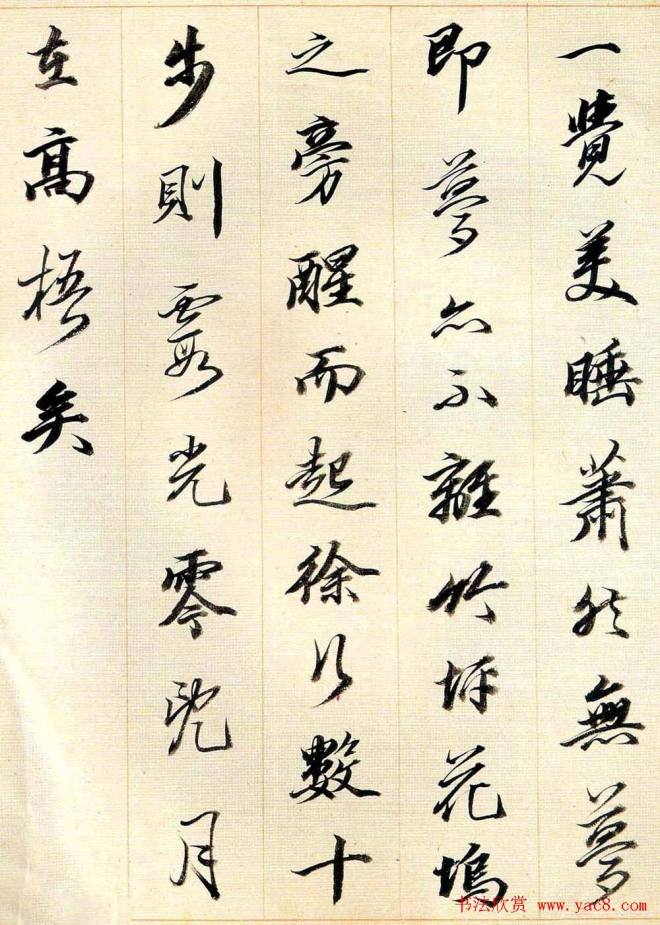 一覺美睡蕭然無夢
即夢亦不離竹坪花塢
之旁醒而起徐行數十
步則霞光零亂月
在高梧矣
书法欣赏 www.yac8.com